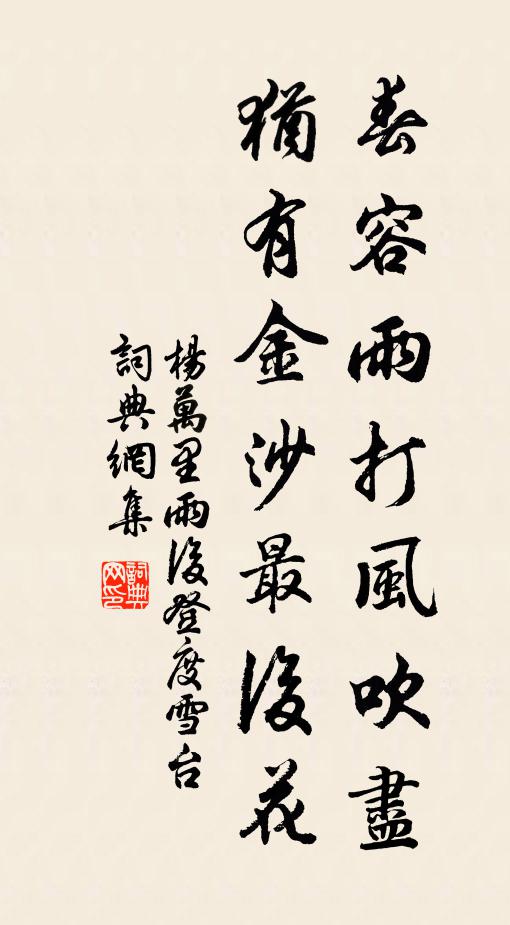 春容雨打風吹盡
猶有金沙最後花
楊萬里雨後登度雪台
詞典網集
詞典
网印